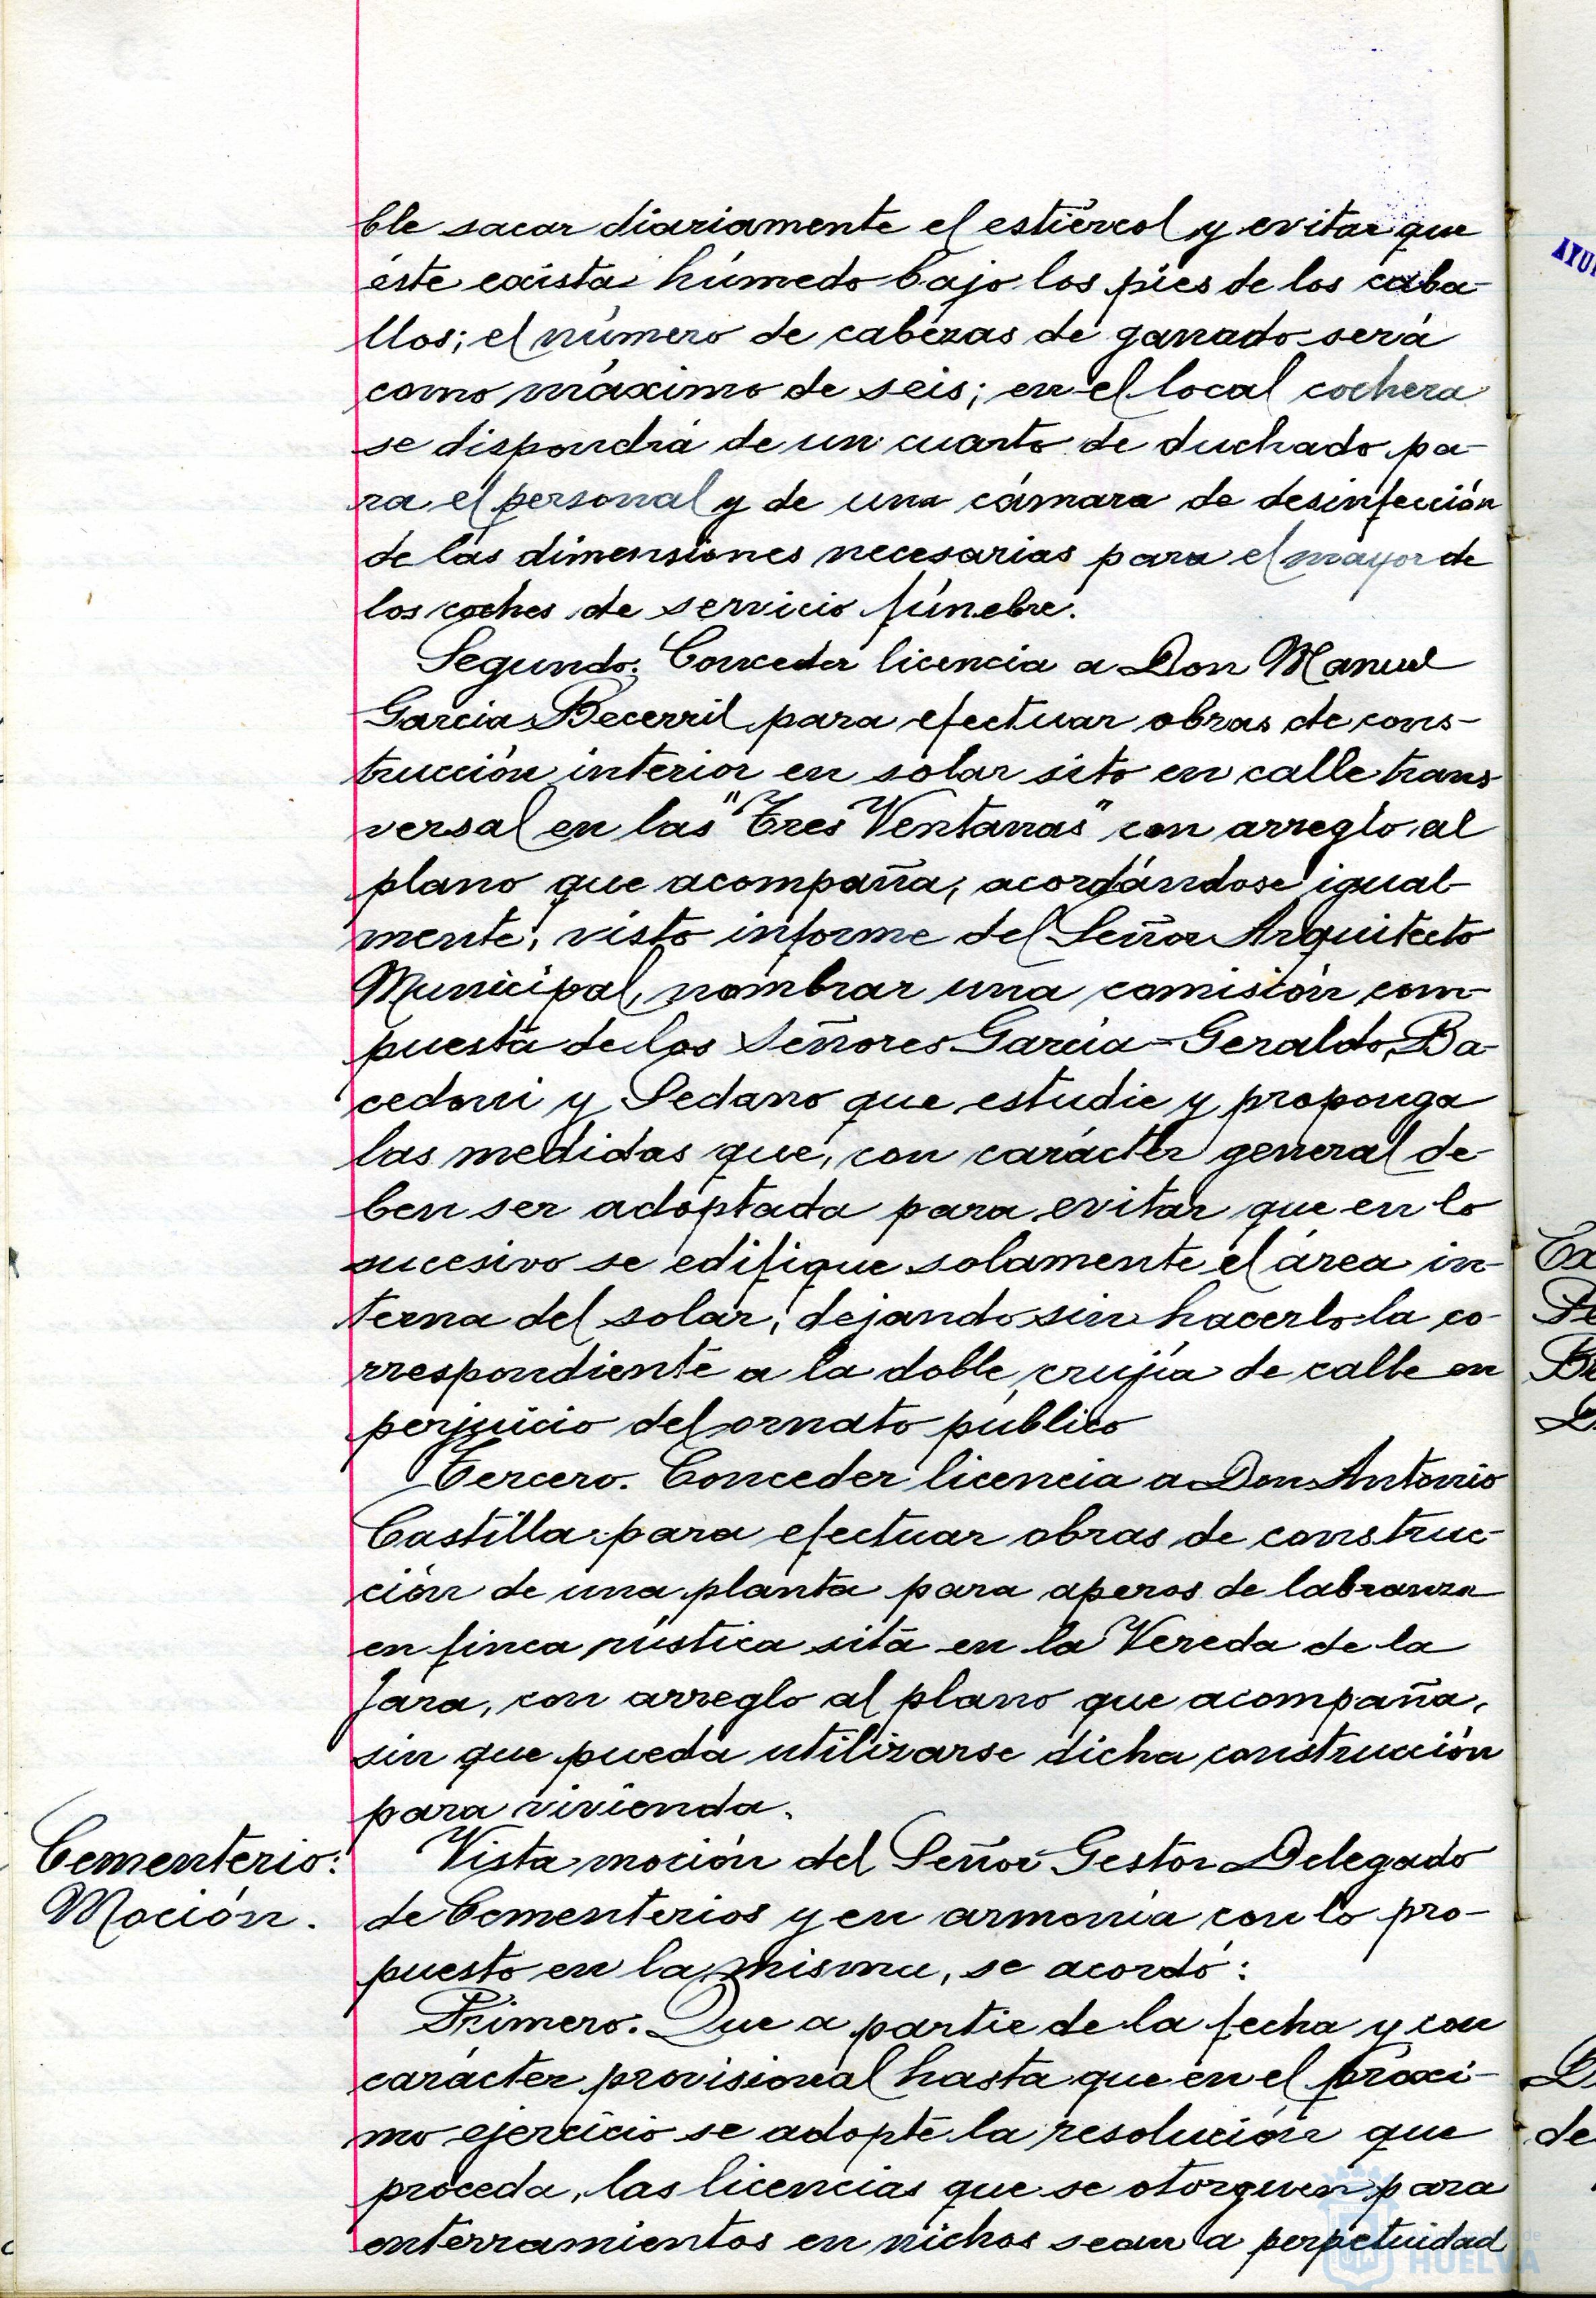 ble sacar diariamente el estiércol y evitar que
éste exista húmedo bajo los pies de los caba-
llos; el número de cabezas de ganado será
como máximo de seis; en el local cochera
se dispondrá de un cuarto de duchado pa-
ra el personal y de una cámara de desinfección
de las dimensiones necesarias para el mayor de
los coches de servicio fúnebre.
Segundo. Conceder licencia a Don Manuel
Garcia Becerril para efectuar obras de cons-
trucción interior en solar sito en calle trans
versal en las "Tres Ventanas" con arreglo al
plano que acompaña, acordándose igual-
mente, visto informe del Señor Arquitecto
Municipal, nombrar una comisión com-
puesta de los Señores García-Geraldo, Ba-
cedoni y Sedano que estudie y proponga
las medidas que, con carácter general de-
ben ser adoptada para evitar que en lo
sucesivo se edifique solamente el área in-
terna del solar, dejando sin hacerlo la co-
rrespondiente a la doble crujía de calle en
perjuicio del ornato público
Tercero. Conceder licencia a Don Antonio
Castilla para efectuar obras de construc-
ción de una planta para aperos de labranza
en finca rústica sita en la Vereda de la
Jara, con arreglo al plano que acompaña,
sin que pueda utilizarse dicha construcción
para vivienda.
Cementerio:
Moción.
Vista moción del Señor Gestor Delegado
de Cementerios y en armonía con lo pro-
puesto en la misma, se acordó:
Primero. Que a partir de la fecha y con
carácter provisional hasta que en el próxi-
mo ejercicio se adopte la resolución que
proceda, las licencias que se otorguen para
enterramientos en nichos sean a perpetuidad
HUELVA